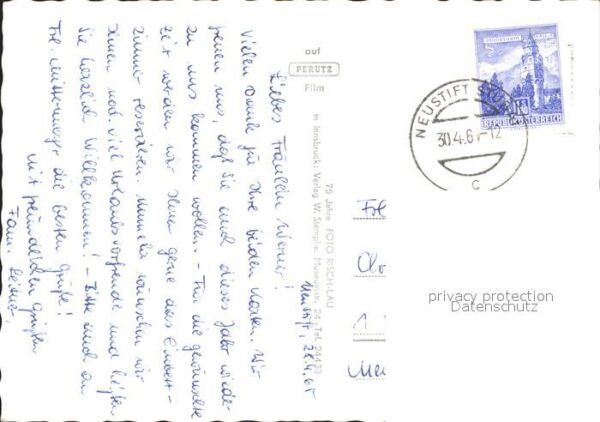 Neustift, 28.4.65
Liebes Fräulein Werner!
Vielen Dank für Ihre beiden Karten. Wir
freuen uns, daß Sie auch dieses Jahr wieder
zu uns kommen wollen. - Für die gewünschte
Zeit werden wir Ihnen gerne das Einbett-
zimmer reservieren. Nunmehr wünschen wir
Ihnen noch viel Urlaubsvorfreude und heißen
Sie herzlich Willkommen! - Bitte auch an
Frl. die besten Grüße!
Mit freundlichen Grüßen
Fam.
auf
PERUTZ
Film
75 Jahre FOTO RISCH-LAU
in Innsbruck: Verlag W. Stempfle, Museumstr. 24, Tel. 24493
REPUBLIK ÖSTERREICH
NEUSTIFT
30.4.6 -12
c
Frl
1
privacy protection
Datenschutz